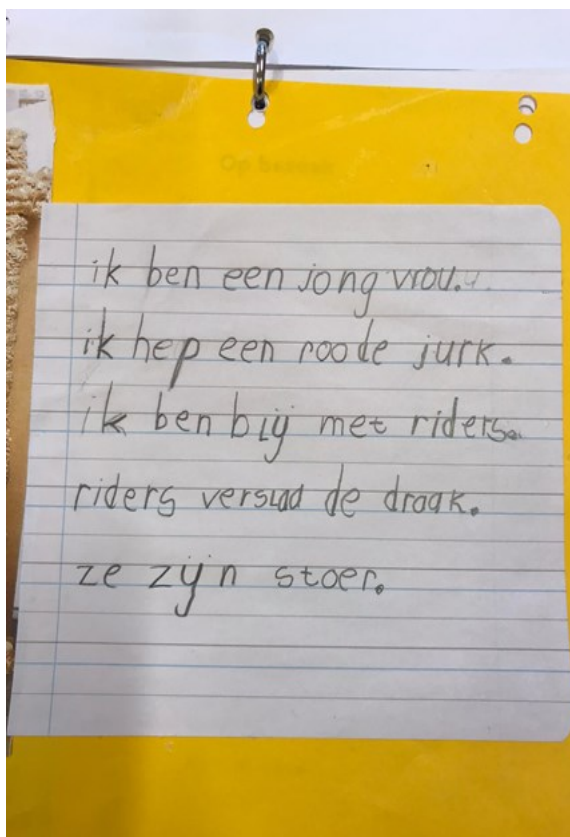 Op bezoek
ik ben een jong vrou.
ik hep een roode jurk.
ik ben blij met riders.
riders verslaa de draak.
ze zijn stoer.